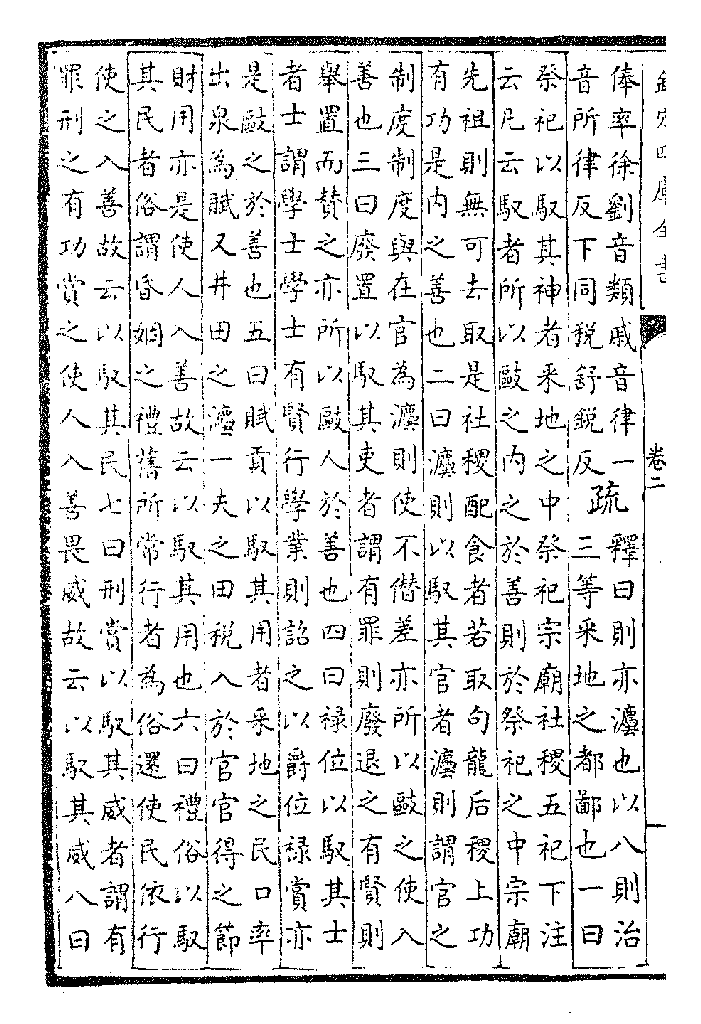 欽定四庫全書
卷二
俸率徐劉音類戚音律一
音所律反下同稅舒銳反
疏
釋曰則亦灋也以八則治
三等采地之都鄙也一曰
祭祀以馭其神者采地之中祭祀宗廟社稷五祀下注
云凡云馭者所以敺之内之於善則於祭祀之中宗廟
先祖則無可去取是社稷配食者若取句龍后稷上功
有功是内之善也二曰灋則以馭其官者灋則謂官之
制度制度與在官為灋則使不僭差亦所以敺之使入
善也三曰廢置以馭其吏者謂有罪則廢退之有賢則
舉置而賛之亦所以敺人於善也四曰禄位以馭其士
者士謂學士學士有賢行學業則詔之以爵位禄賞亦
是敺之於善也五曰賦貢以馭其用者采地之民口率
出泉為賦又井田之灋一夫之田稅入於官官得之節
財用亦是使人入善故云以馭其用也六曰禮俗以馭
其民者俗謂昏姻之禮舊所常行者為俗還使民依行
使之入善故云以馭其民七曰刑賞以馭其威者謂有
罪刑之有功賞之使人入善畏威故云以馭其威八曰